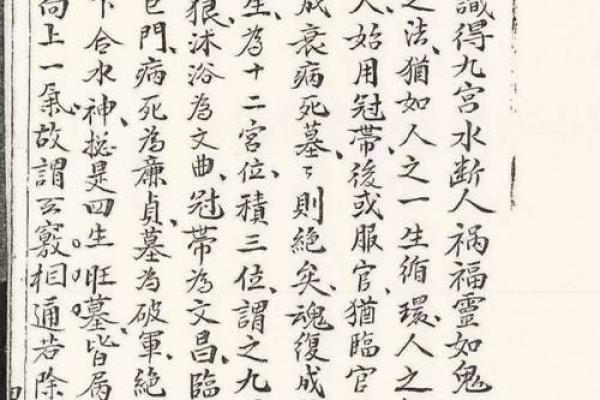 識得九宫水断人祸福靈如鬼
之法、猶如人之一生循環、人之
人、始用冠帶、後或服官、猶臨官
成衰病死墓、々則絶矣、魂復成
生、為十二宫位、積三位、謂之九
狼、沐浴為文曲、冠帶為文昌、臨
巨門、病死為廉貞、墓為破軍、絶
下合水神、捴是四生旺墓、皆属
向上一氣、故謂玄竅相通若除